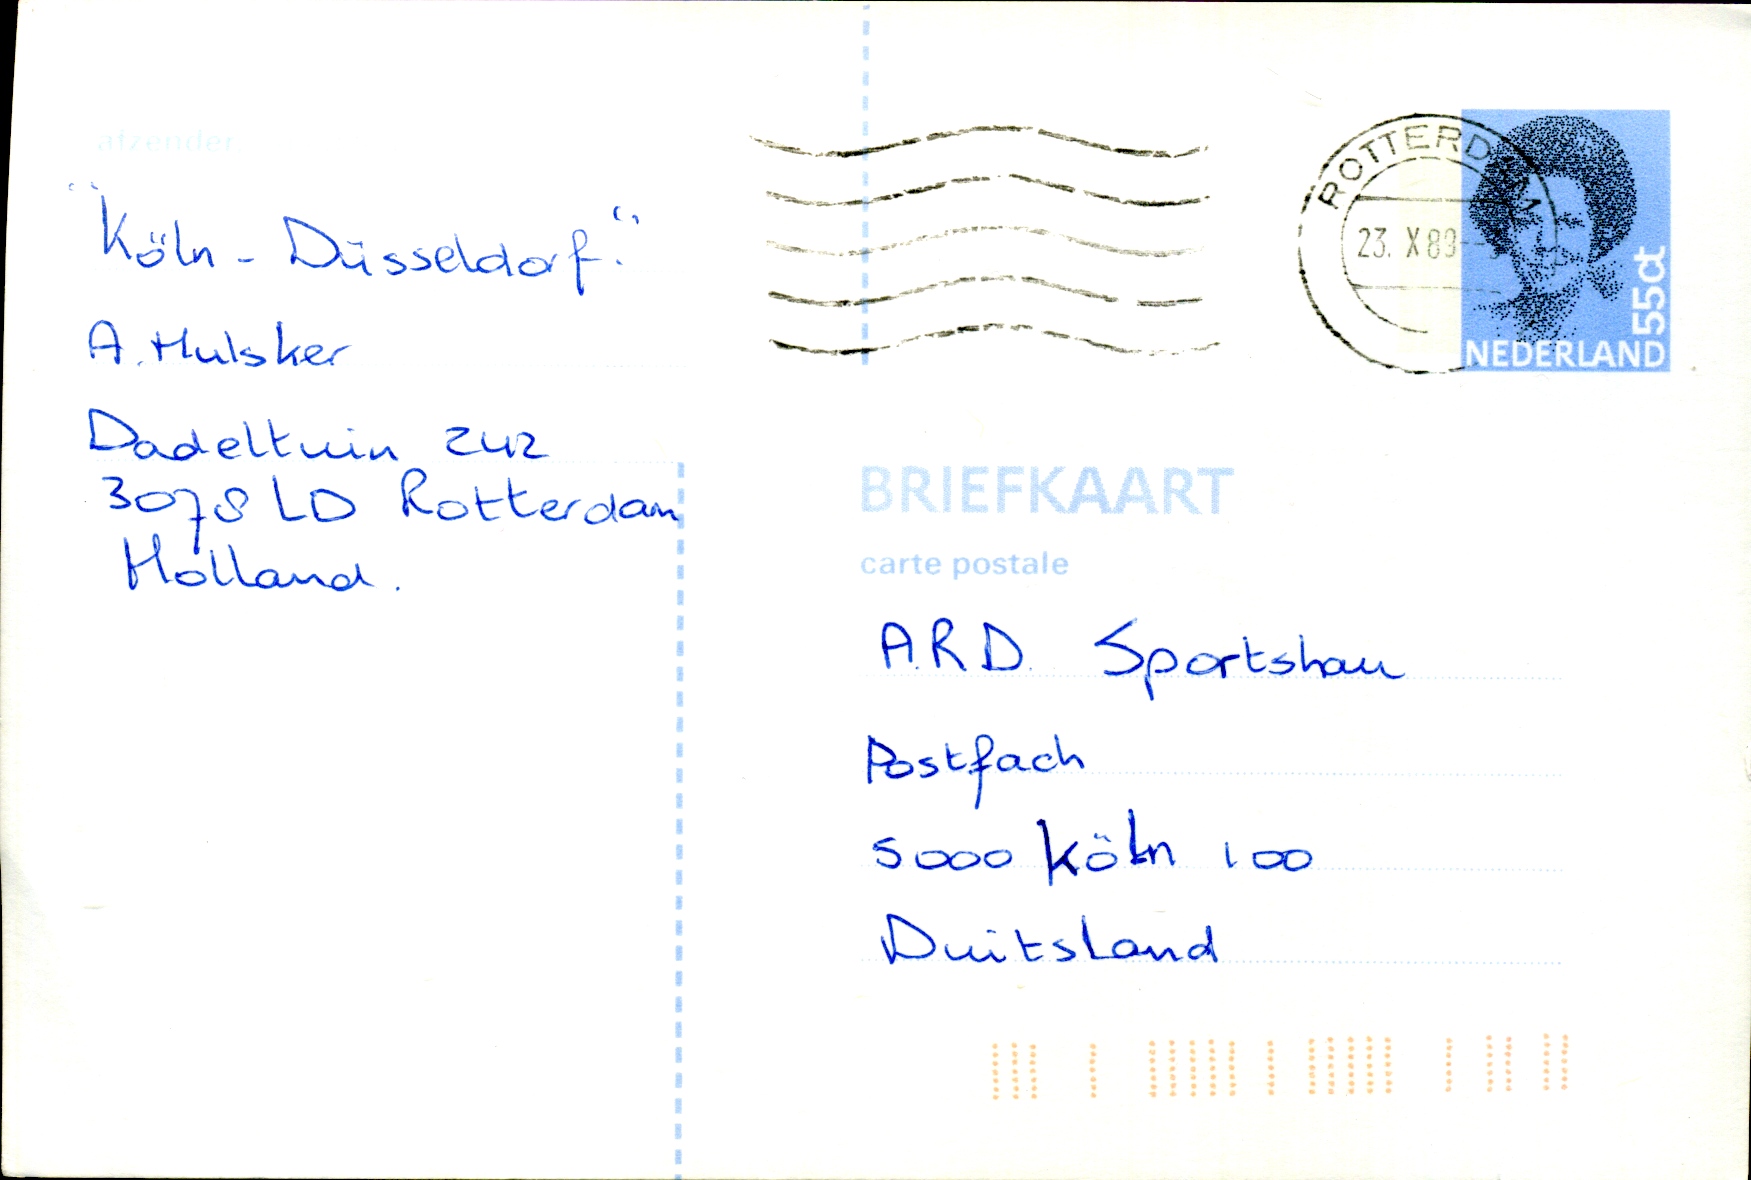 afzender
"Köln - Düsseldorf."
A. Hulsker
Dadeltuin 242
3078 LD Rotterdam
Holland.
ROTTERDAM
23. X 89
55ct
NEDERLAND
BRIEFKAART
carte postale
A.R.D. Sportshau
Postfach
5000 Köln 100
Duitsland